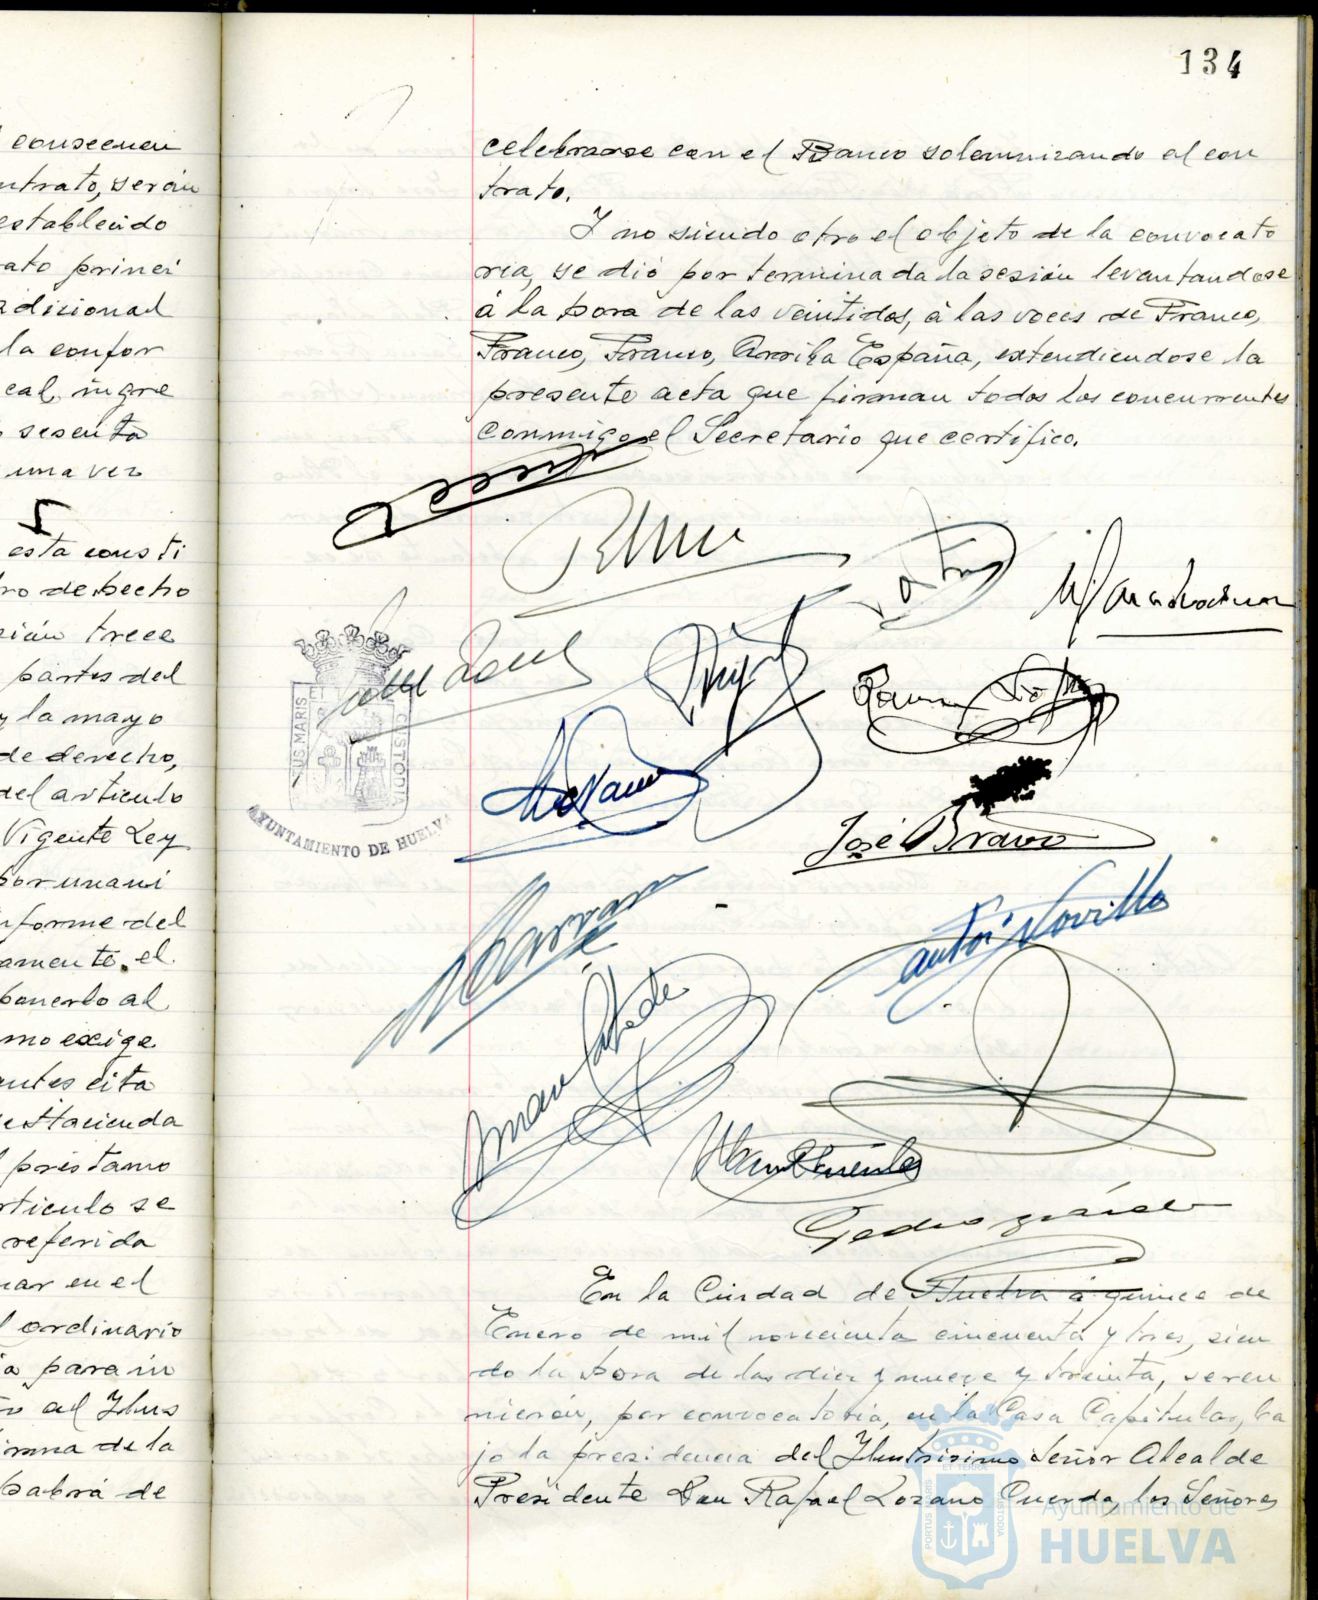 consecuen
ntrato, serán
establecido
ato princi
adicional
la confor
cal, ingre
sesenta
una vez
esta consti
ro de hecho
sión trece
partes del
y la mayo
de derecho,
del articulo
Vigente Ley
por unani
nforme del
amente, el
ponerlo al
mo exige
antes cita
de Hacienda
l préstamo
rticulo se
referida
nar en el
l ordinario
a para in
al Ilus
irma de la
habrá de
134
celebrarse con el Banco solemnizando el con
trato.
Y no siendo otro el objeto de la convocato
ria, se dió por terminada la sesión levantandose
á la hora de las veintidos, á las voces de Franco,
Franco, Franco, Arriba España, extendiendose la
presente acta que firman todos los concurrentes
conmigo el Secretario que certifico.
PORTUS MARIS ET TERRAE CUSTODIA
AYUNTAMIENTO DE HUELVA
José Bravo
Antº Novillo
En la Ciudad de Huelva á quince de
Enero de mil novecienta cincuenta y tres, sien
do la hora de las diez y nueve y treinta, se reu
nieron, por convocatoria, en la Casa Capitular, ba
jo la presidencia del Ilustrisimo Señor Alcalde
Presidente Don Rafael Lozano Cuerda, los Señores
PORTUS MARIS ET TERRAE CUSTODIA
Ayuntamiento de
HUELVA